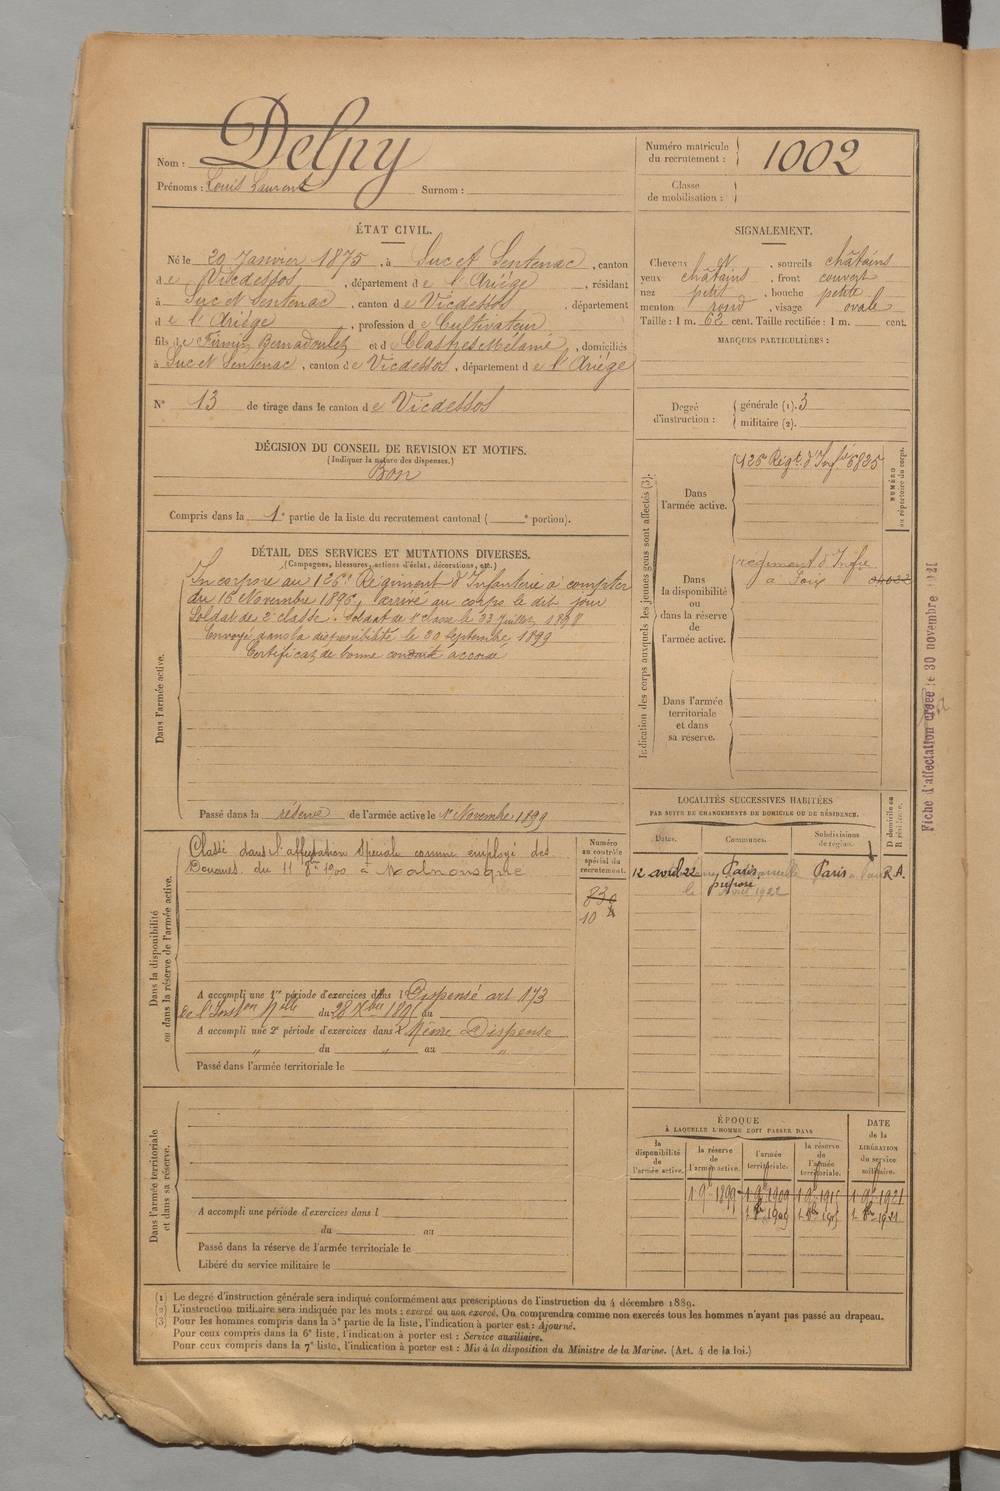 Nom : Delpy
Prénoms : Louis Laurent Surnom :
Numéro matricule du recrutement : 1002
Classe de mobilisation :
ÉTAT CIVIL.
Né le 29 Janvier 1875, à Suc et Sentenac, canton
de Vicdessos, département de l'Ariège, résidant
à Suc et Sentenac, canton de Vicdessos, département
de l'Ariège, profession de Cultivateur
fils de Firmin Bernadoulet et d, domiciliés
à Suc et Sentenac, canton de Vicdessos, département de l'Ariège
N° 13 de tirage dans le canton de Vicdessos
SIGNALEMENT.
Cheveux N, sourcils châtains
yeux châtains, front couvert
nez petit, bouche petite
menton rond, visage ovale
Taille : 1 m. 62 cent. Taille rectifiée : 1 m. cent.
MARQUES PARTICULIÈRES :
Degré d'instruction : générale (1). 3
militaire (2).
DÉCISION DU CONSEIL DE REVISION ET MOTIFS.
(Indiquer la nature des dispenses.)
Bon
Compris dans la 1e partie de la liste du recrutement cantonal ( e portion).
DÉTAIL DES SERVICES ET MUTATIONS DIVERSES.
(Campagnes, blessures, actions d'éclat, décorations, etc.)
Dans l'armée active.
Incorporé au 126e Régiment d'Infanterie à compter
du 16 Novembre 1896, arrivé au corps le dit jour
Soldat de 2e classe. Soldat de 1e classe le Juillet 1898
Envoyé dans la disponibilité le 20 Septembre 1899
Certificat de bonne conduite accordé
Passé dans la réserve de l'armée active le 1er Novembre 1899
Indication des corps auxquels les jeunes gens sont affectés (3) :
NUMÉRO au répertoire du corps.
Dans l'armée active.
126e Régt. d'Infie 6825
Dans la disponibilité ou dans la réserve de l'armée active.
régiment d'Infie
à Foix
Dans l'armée territoriale et dans sa réserve.
Fiche d'affectation créée le 30 novembre 1921
Dans la disponibilité ou dans la réserve de l'armée active.
Classé dans l'affectation spéciale comme employé des
Douanes du 11 1900 à
Numéro au contrôle spécial du recrutement.
839
10
A accompli une 1re période d'exercices dans l Dispensé art 173
de l'Inston Mlle du 28 Xbre 1895 au
A accompli une 2e période d'exercices dans l Même Dispense
" du " au "
Passé dans l'armée territoriale le
LOCALITÉS SUCCESSIVES HABITÉES
PAR SUITE DE CHANGEMENTS DE DOMICILE OU DE RÉSIDENCE.
Dates. Communes. Subdivisions de région. D domicile ou R résidence.
12 avril 22 Paris Paris R A.
préposé
le avril 1922
Dans l'armée territoriale et dans sa réserve.
A accompli une période d'exercices dans l
du au
Passé dans la réserve de l'armée territoriale le
Libéré du service militaire le
ÉPOQUE
À LAQUELLE L'HOMME DOIT PASSER DANS
la disponibilité de l'armée active.
la réserve de l'armée active.
l'armée territoriale.
la réserve de l'armée territoriale.
DATE de la LIBÉRATION du service militaire.
1 9bre 1899 1 9bre 1909 1 9bre 1915 1 9bre 1921
1 8bre 1909 1 8bre 1915 1 8bre 1921
(1) Le degré d'instruction générale sera indiqué conformément aux prescriptions de l'instruction du 4 décembre 1889.
(2) L'instruction militaire sera indiquée par les mots : exercé ou non exercé. On comprendra comme non exercés tous les hommes n'ayant pas passé au drapeau.
(3) Pour les hommes compris dans la 5e partie de la liste, l'indication à porter est : Ajourné.
Pour ceux compris dans la 6e liste, l'indication à porter est : Service auxiliaire.
Pour ceux compris dans la 7e liste, l'indication à porter est : Mis à la disposition du Ministre de la Marine. (Art. 4 de la loi.)